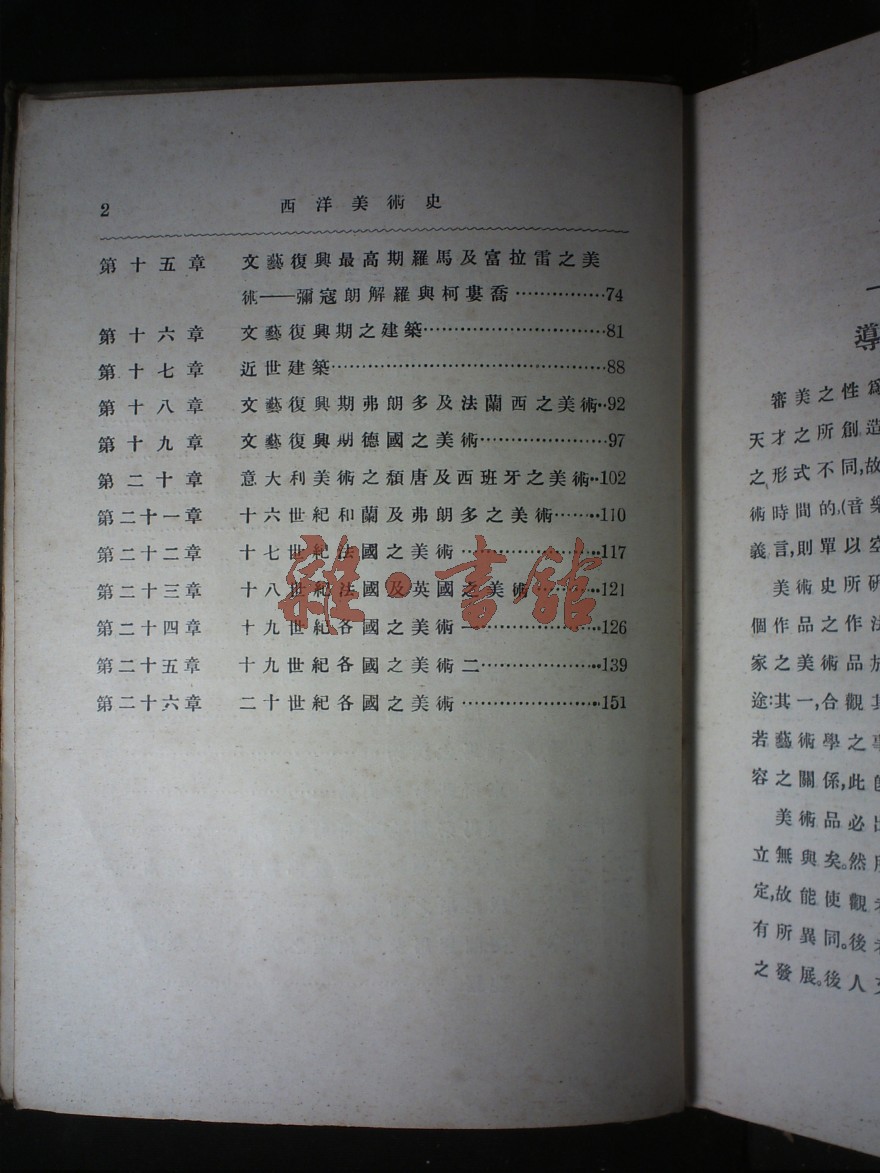 2 西洋美術史
第十五章 文藝復興最高期羅馬及富拉雷之美
術——彌寇朗解羅與柯婁喬……………74
第十六章 文藝復興期之建築……………………81
第十七章 近世建築………………………………88
第十八章 文藝復興期弗朗多及法蘭西之美術…92
第十九章 文藝復興期德國之美術………………97
第二十章 意大利美術之頹唐及西班牙之美術…102
第二十一章 十六世紀和蘭及弗朗多之美術……110
第二十二章 十七世紀法國之美術………………117
第二十三章 十八世紀法國及英國之美術………121
第二十四章 十九世紀各國之美術一……………126
第二十五章 十九世紀各國之美術二……………139
第二十六章 二十世紀各國之美術………………151
雜·書館
導
審美之性爲
天才之所創造
之形式不同,故
術時間的,(音樂
義言,則單以空
美術史所研
個作品之作法
家之美術品
途:其一,合觀其
若藝術學之事
容之關係,此
美術品必出
立無與矣。然所
定,故能使觀者
有所異同。後
之發展。後人